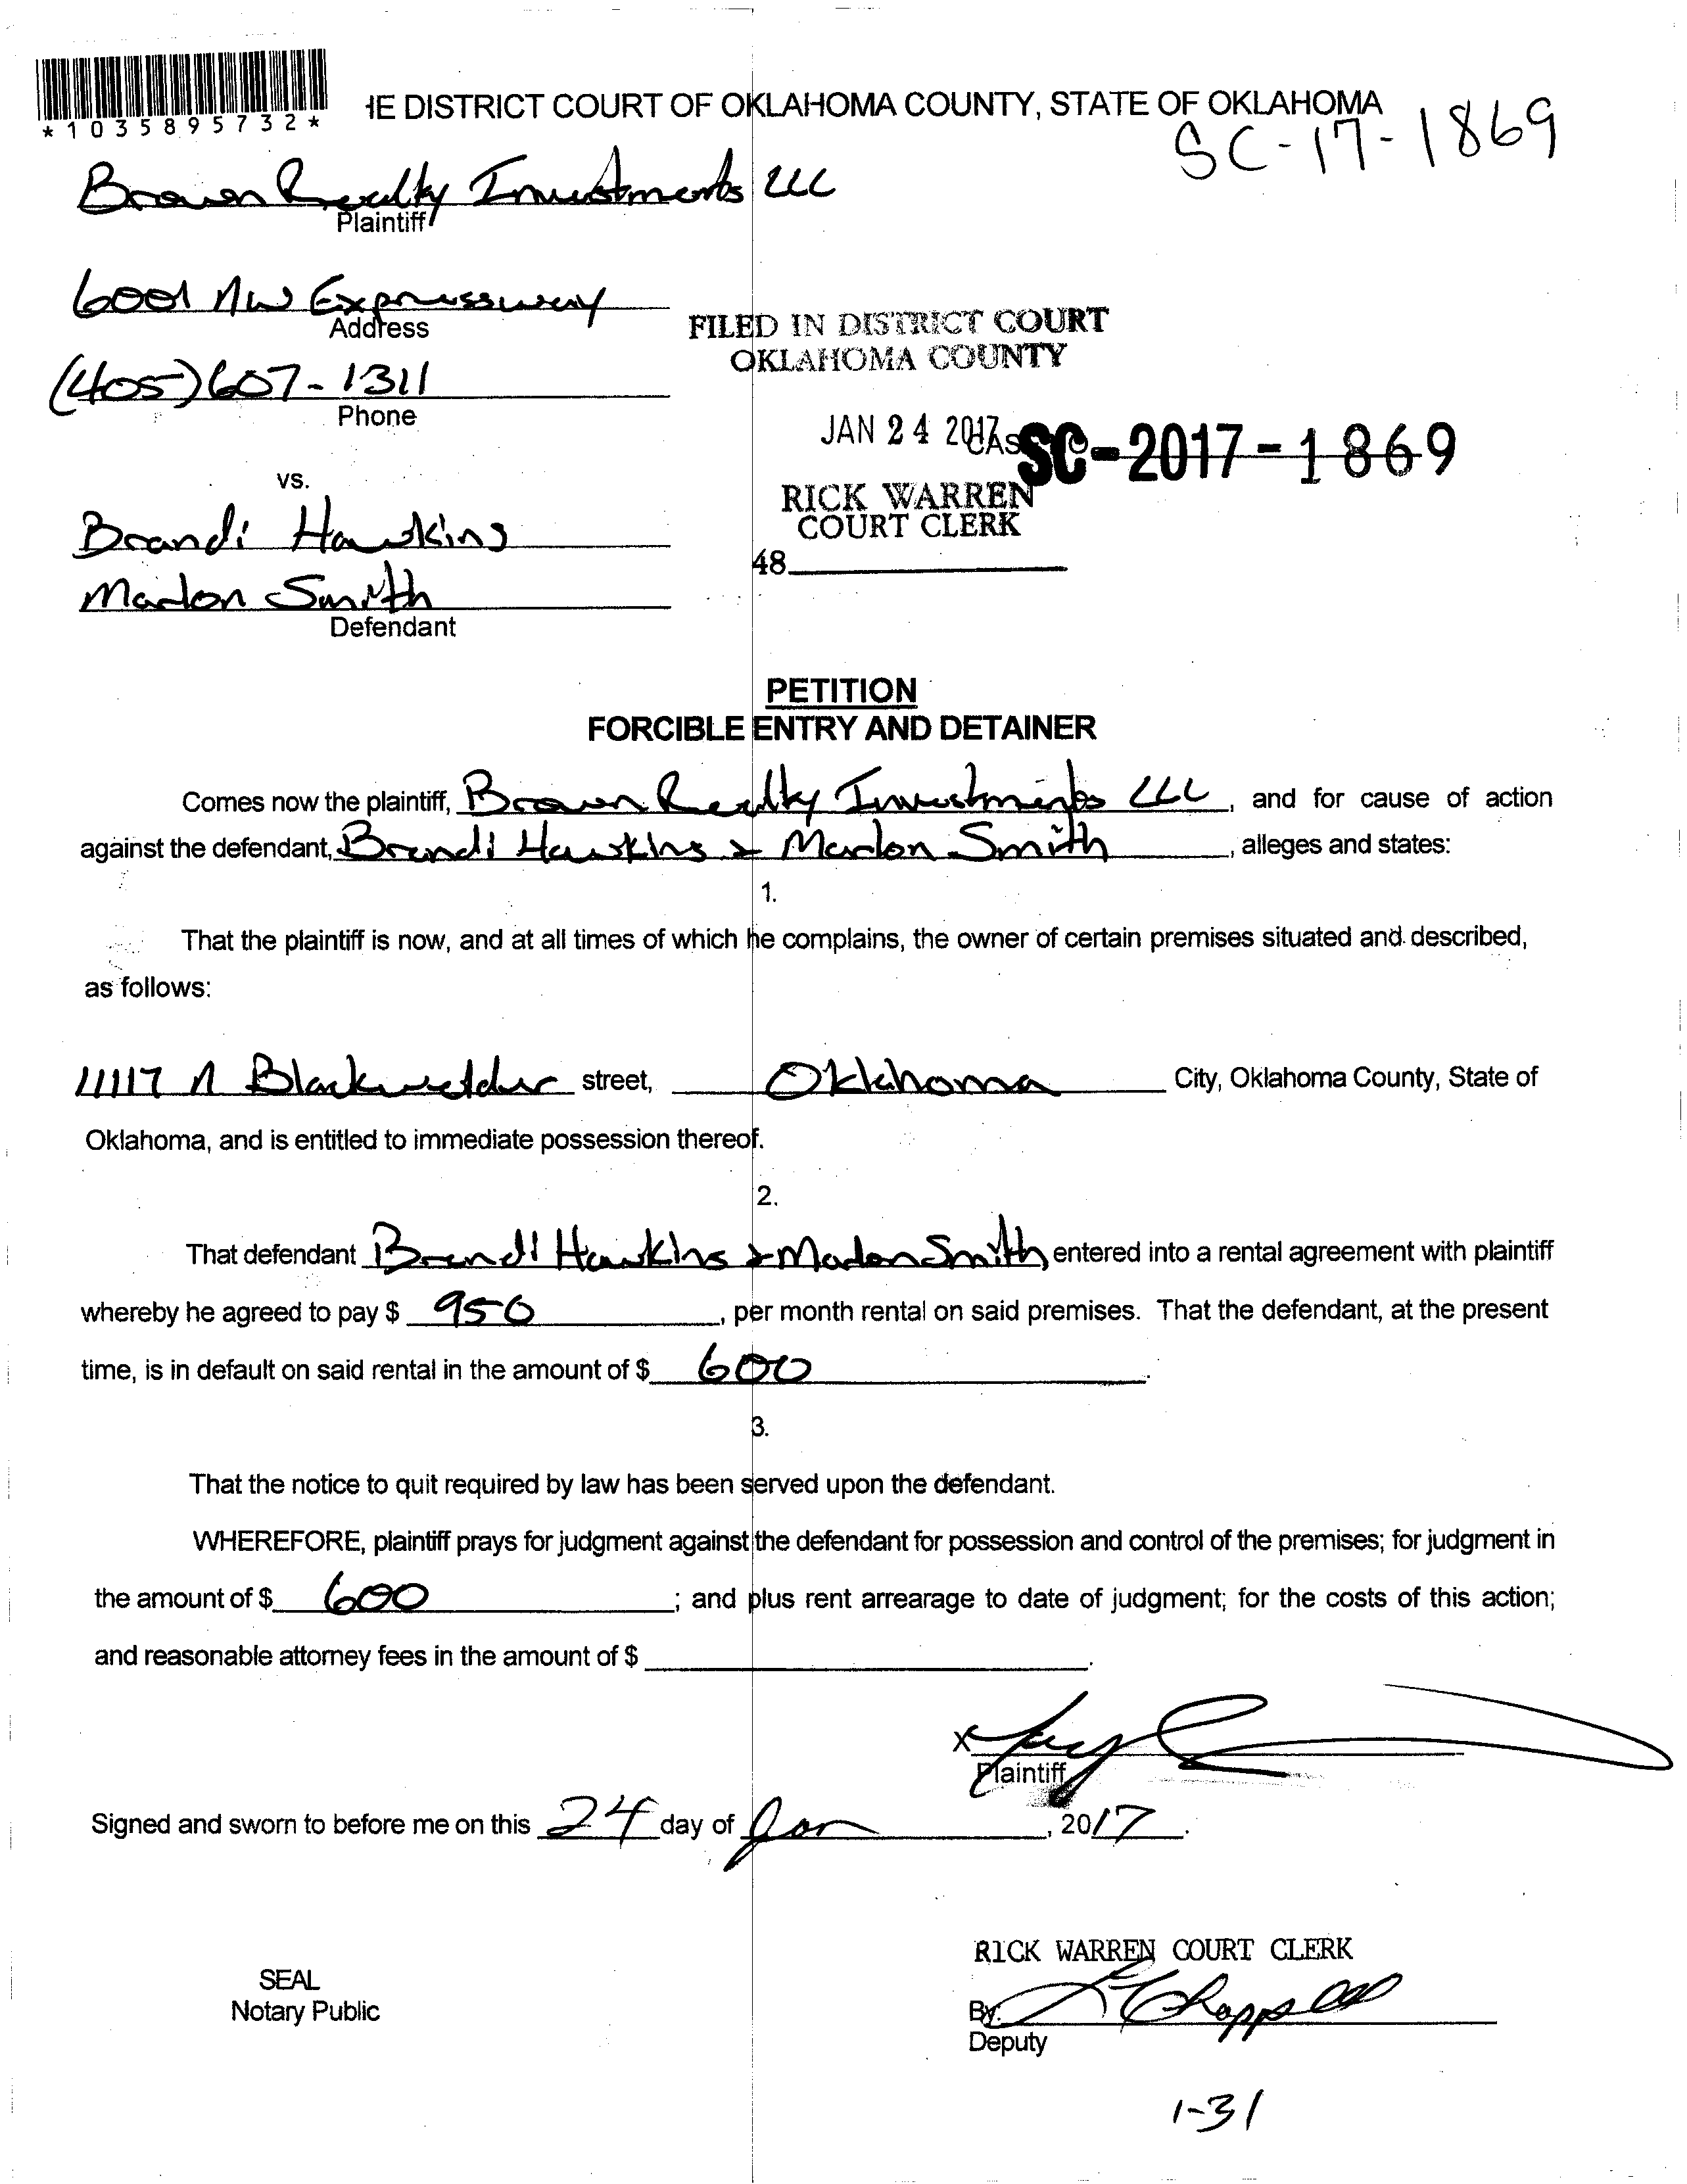 *1035895732*
IE DISTRICT COURT OF OKLAHOMA COUNTY, STATE OF OKLAHOMA
SC-17-1869
Brown Realty Investments LLC
Plaintiff
6001 NW Expressway
Address
FILED IN DISTRICT COURT
OKLAHOMA COUNTY
(405)607-1311
Phone
JAN 24 2017
SC-2017-1869
vs.
RICK WARREN
COURT CLERK
Brandi Hawkins
48
Marlon Smith
Defendant
PETITION
FORCIBLE ENTRY AND DETAINER
Comes now the plaintiff, Brown Realty Investments LLC, and for cause of action
against the defendant, Brandi Hawkins & Marlon Smith, alleges and states:
1.
That the plaintiff is now, and at all times of which he complains, the owner of certain premises situated and described,
as follows:
11117 N Blackwelder street, Oklahoma City, Oklahoma County, State of
Oklahoma, and is entitled to immediate possession thereof.
2.
That defendant Brandi Hawkins & Marlon Smith entered into a rental agreement with plaintiff
whereby he agreed to pay $ 950, per month rental on said premises. That the defendant, at the present
time, is in default on said rental in the amount of $ 600.
3.
That the notice to quit required by law has been served upon the defendant.
WHEREFORE, plaintiff prays for judgment against the defendant for possession and control of the premises; for judgment in
the amount of $ 600; and plus rent arrearage to date of judgment; for the costs of this action;
and reasonable attorney fees in the amount of $.
X
Plaintiff
Signed and sworn to before me on this 24 day of Jan, 2017.
RICK WARREN COURT CLERK
SEAL
Notary Public
By:
Deputy
1-31